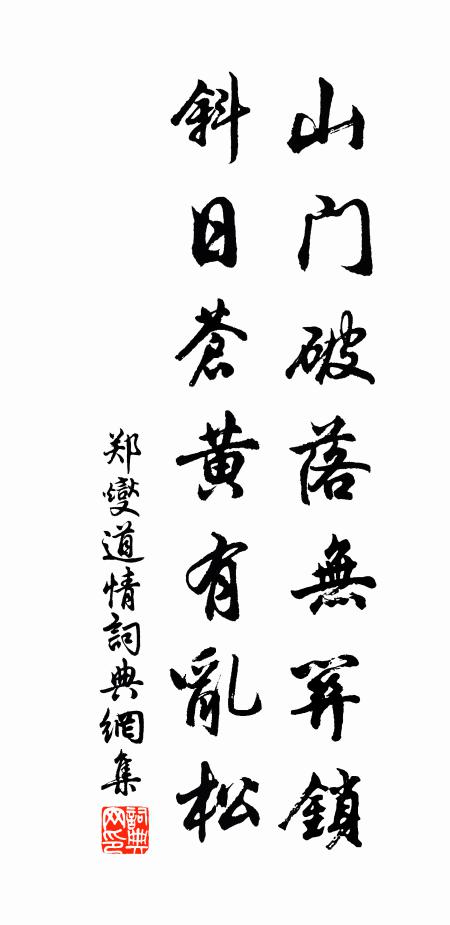 山门破落無關鎖
斜日蒼黄有亂松
郑燮道情詞典網集
詞典网印